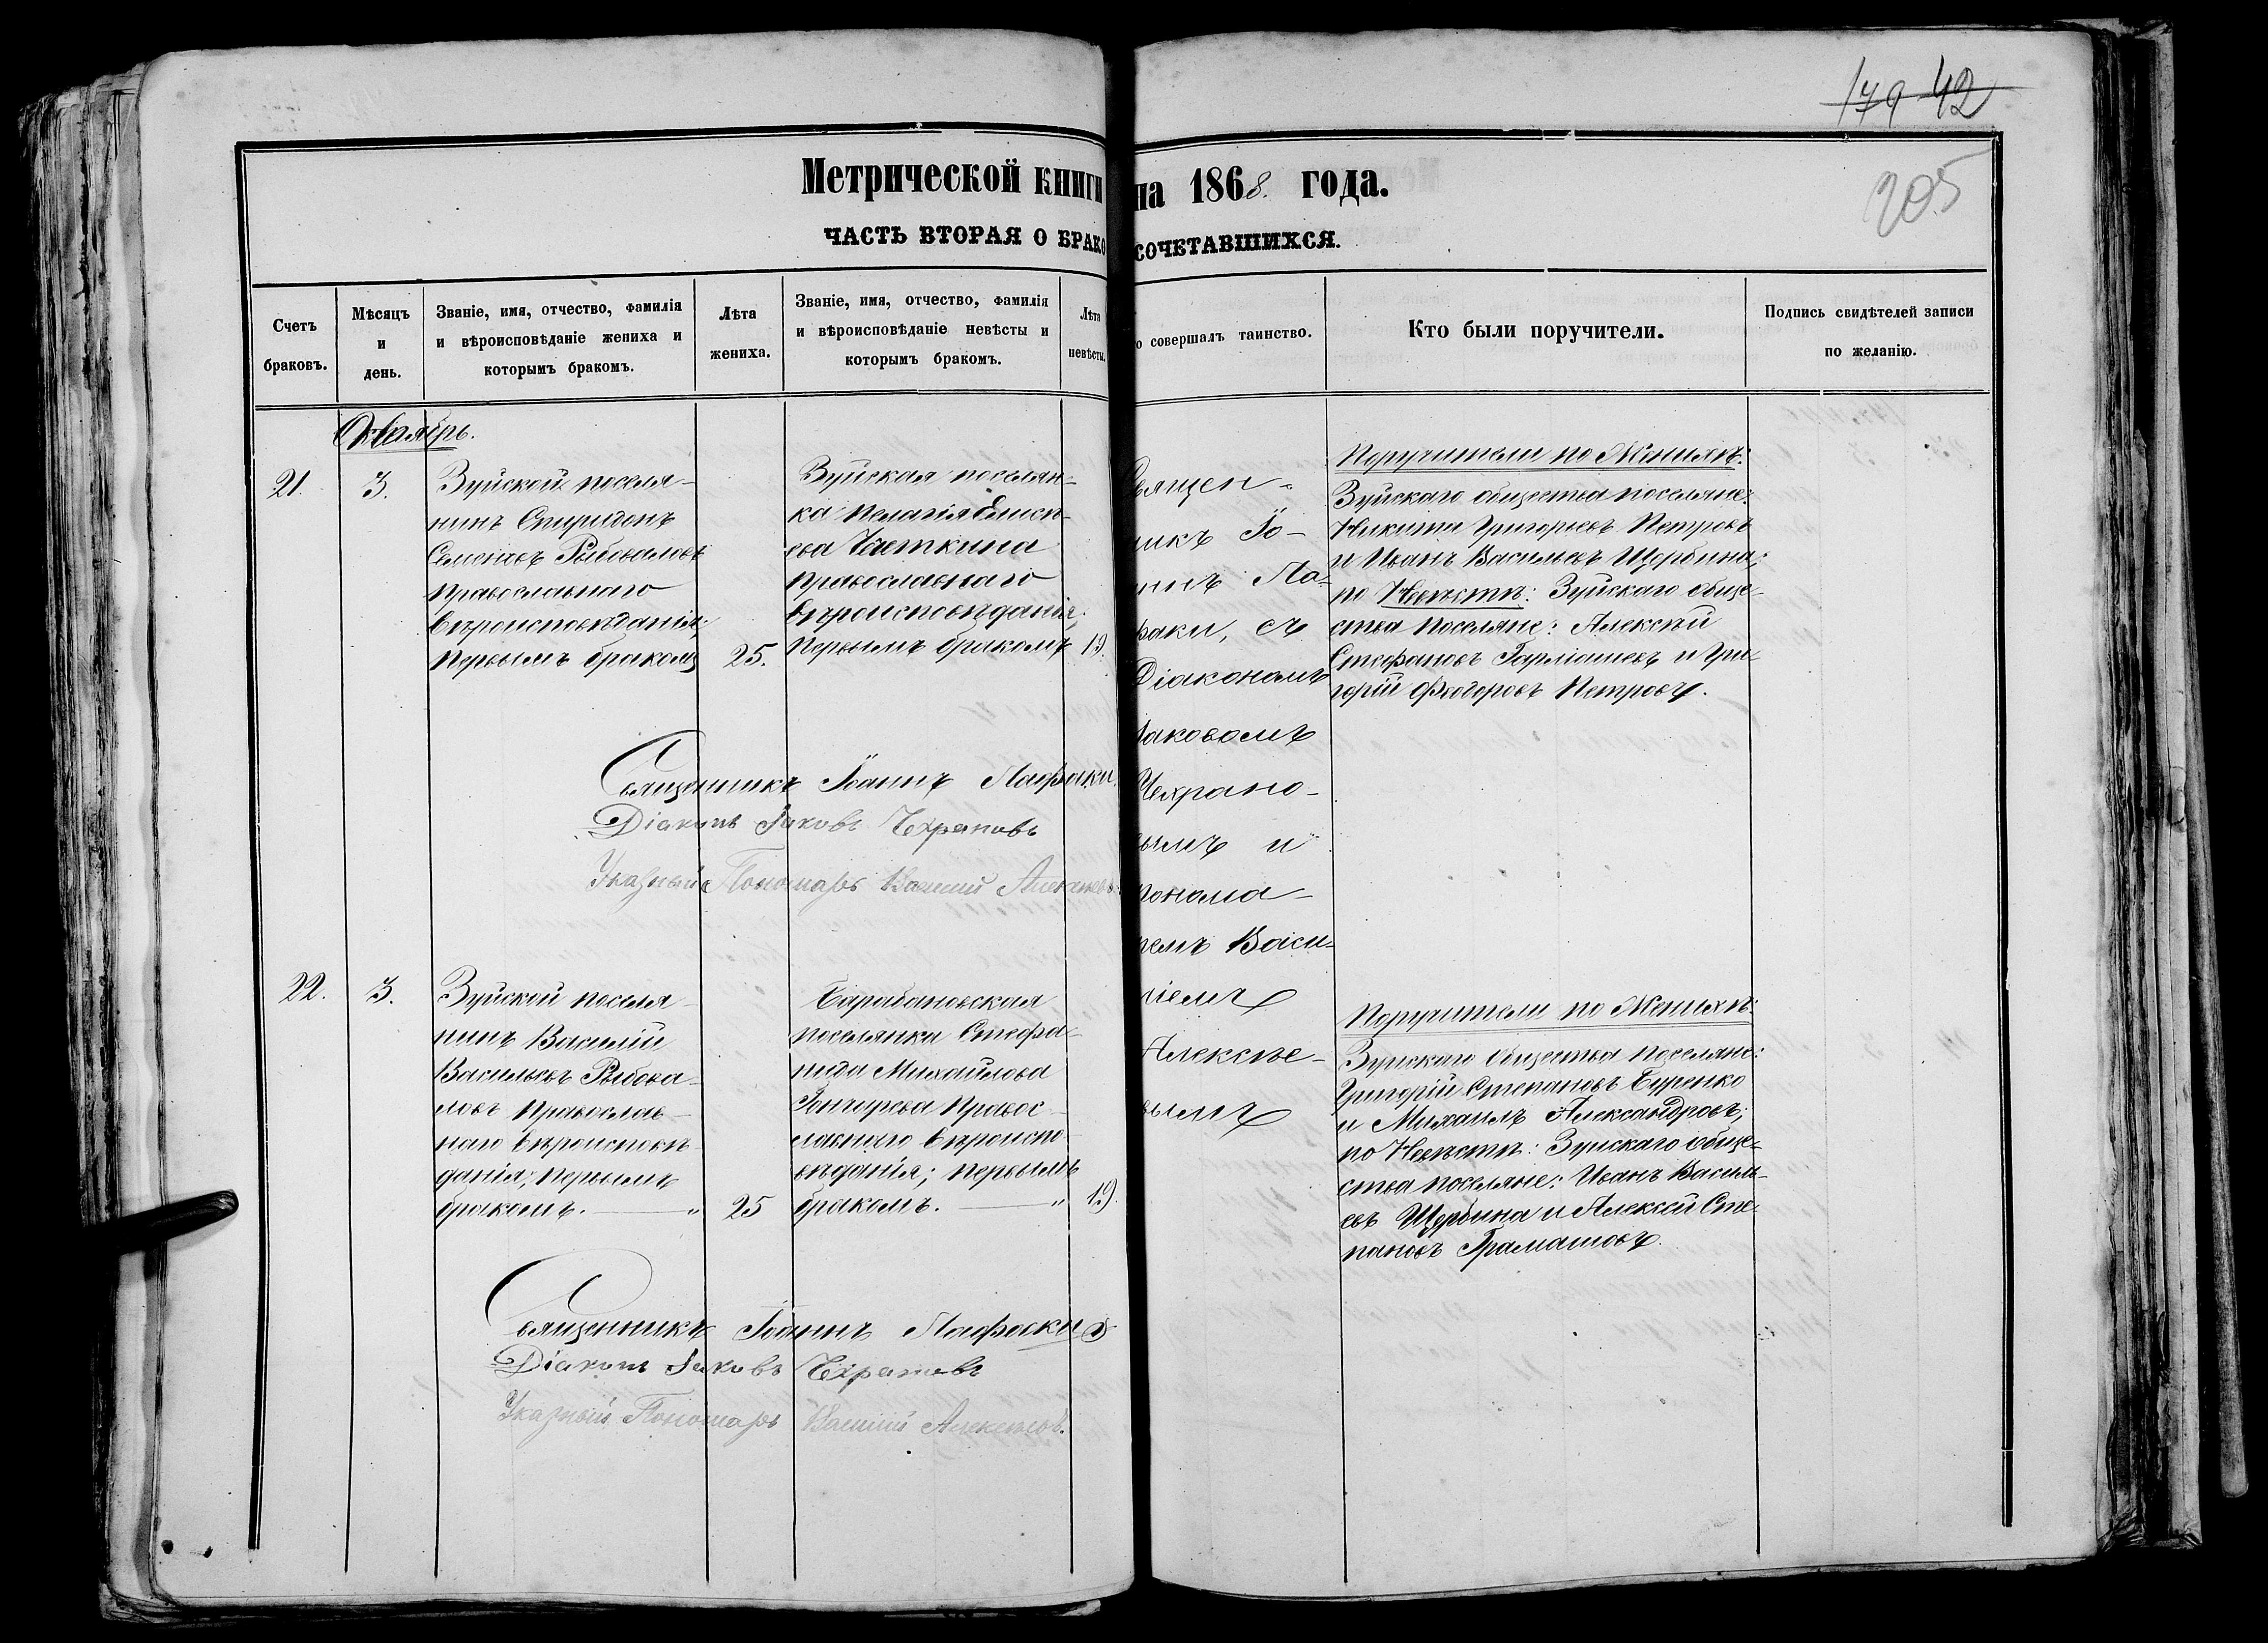 179 42
205
Метрической книги на 1868. года.
ЧАСТЬ ВТОРАЯ О БРАКОСОЧЕТАВШИХСЯ.
Счетъ
браковъ.
Мѣсяцъ
и
день.
Званіе, имя, отчество, фамилія
и вѣроисповѣданіе жениха и
которымъ бракомъ.
Лѣта
жениха.
Званіе, имя, отчество, фамилія
и вѣроисповѣданіе невѣсты и
которымъ бракомъ.
Лѣта
невѣсты.
о совершалъ таинство.
Кто были поручители.
Подпись свидѣтелей записи
по желанію.
21.
3.
Зуйской поселя-
нинъ Спиридонъ
Семеновъ Рыбваловъ
православнаго
вѣроисповѣданія;
первымъ бракомъ
25.
Зуйская поселян-
ка Пелагія Елисѣ-
ева
православнаго
вѣроисповѣданія;
первымъ бракомъ
19.
Священ-
никъ Іо-
аннъ Ла-
факи, съ
Діакономъ
Іаковомъ
Чехрано-
вымъ и
понома-
ремъ Васи-
ліемъ
Алексѣе-
вымъ
Поручители по Женихѣ:
Зуйскаго общества поселяне:
Никита Григорьевъ Петровъ
и Иванъ Васильевъ Щербина;
по Невѣстѣ: Зуйскаго обще-
ства поселяне: Алексѣй
Стефановъ Гармашевъ и Гри-
горій Феодоровъ Петровъ.
Священникъ Іоаннъ Лафаки
Діаконъ Іаковъ Чехрановъ
Указный Пономарь Василій Алексѣевъ
22.
3.
Зуйской поселя-
нинъ Василій
Васильевъ Рыбова-
ловъ православ-
наго вѣроисповѣ-
данія; первымъ
бракомъ. — "
25
Барабановская
поселянка Стефа-
нида Михайлова
Гончарева правос-
лавнаго вѣроиспо-
вѣданія; первымъ
бракомъ. — "
19.
Поручители по Женихѣ:
Зуйскаго общества поселяне:
Григорій Степановъ Буренко
и Михаилъ Александровъ;
по Невѣстѣ: Зуйскаго обще-
ства поселяне: Иванъ Василь-
евъ Щербина и Алексѣй Сте-
пановъ Грамашовъ.
Священникъ Іоаннъ Лафаки
Діаконъ Іаковъ Чехрановъ
Указный Пономарь Василій Алексѣевъ.